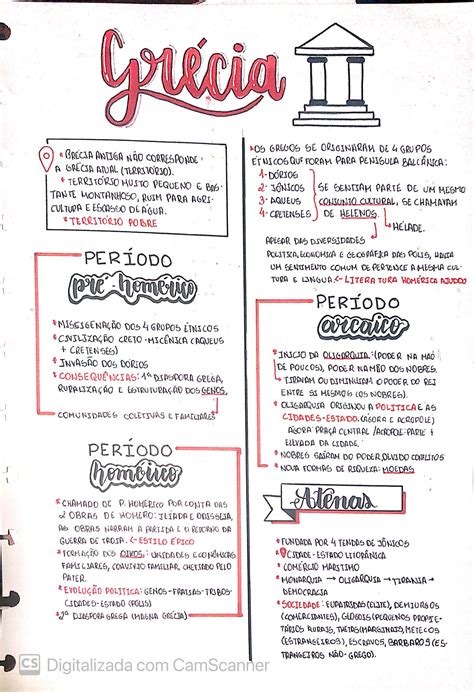 Grécia
• GRÉCIA ANTIGA NÃO CORRESPONDE
A GRÉCIA ATUAL (TERRITÓRIO).
• TERRITÓRIO MUITO PEQUENO E BAS-
TANTE MONTANHOSO, RUIM PARA AGRI-
CULTURA E ESCASSO DE ÁGUA.
• TERRITÓRIO POBRE
PERÍODO
pré-homérico
• MISCIGENAÇÃO DOS 4 GRUPOS ÉTNICOS
• CIVILIZAÇÃO CRETO-MICÊNICA (AQUEUS
+ CRETENSES)
• INVASÃO DOS DÓRIOS
• CONSEQUÊNCIAS: 1ª DIASPORA GREGA,
RURALIZAÇÃO E ESTRUTURAÇÃO DOS GENOS.
COMUNIDADES COLETIVAS E FAMILIARES
PERÍODO
homérico
• CHAMADO DE P. HOMÉRICO POR CONTA DAS
2 OBRAS DE HOMERO: ILÍADA E ODISSEIA,
AS OBRAS NARRAM A PARTIDA E O RETORNO DA
GUERRA DE TROIA. ← ESTILO ÉPICO
• FORMAÇÃO DOS OIKOS: UNIDADES ECONÔMICAS
FAMILIARES, CONVÍVIO FAMILIAR, CHEFIADO PELO
PATER.
• EVOLUÇÃO POLÍTICA: GENOS-FRATIAS-TRIBOS-
CIDADES-ESTADO (PÓLIS)
• 2ª DIASPORA GREGA (MAGNA GRÉCIA)
• OS GREGOS SE ORIGINARAM DE 4 GRUPOS
ÉTNICOS QUE FORAM PARA PENISULA BALCÂNICA:
1- DÓRIOS
2- JÔNICOS
3- AQUEUS
4- CRETENSES
SE SENTIAM PARTE DE UM MESMO
CONJUNTO CULTURAL, SE CHAMAVAM
DE HELENOS.
HÉLADE.
APESAR DAS DIVERSIDADES
POLITICA, ECONOMICA E GEOGRAFIA DAS POLIS, HAVIA
UM SENTIMENTO COMUM DE PERTENCE A MESMA CUL-
TURA E LINGUA. ← LITERATURA HOMÉRICA AJUDOU
PERÍODO
arcaico
• INICIO DA OLIGARQUIA: (PODER NA MÃO
DE POUCOS), PODER NA MÃO DOS NOBRES.
TIRAVAM OU DIMINUIAM O PODER DO REI
ENTRE SI MESMOS (OS NOBRES).
• OLIGARQUIA ORIGINOU A POLITICA E AS
CIDADES-ESTADO. (ÁGORA E ACRÓPOLE)
ÁGORA PRAÇA CENTRAL / ACRÓPOLE-PARTE +
ELEVADA DA CIDADE
• NOBRES SAÍRAM DO PODER, DEVIDO CONFLITOS
• NOVA FORMAS DE RIQUEZA: MOEDAS
Atenas
• FUNDADA POR 4 TENDAS DE JÔNICOS
• CIDADE-ESTADO LITORÂNICA
• COMÉRCIO MARITIMO
• MONARQUIA → OLIGARQUIA → TIRANIA →
DEMOCRACIA
• SOCIEDADE: EUPATRIDAS (ELITE), DEMIURGOS
(COMERCIANTES), GEÓGIS (PEQUENOS PROPRIE-
TÁRIOS RURAIS, THETAS (MARGINAIS), METECOS
(ESTRANGEIROS), ESCRAVOS, BARBAROS (ES-
TRANGEIROS NÃO-GREGO).
CS Digitalizada com CamScanner